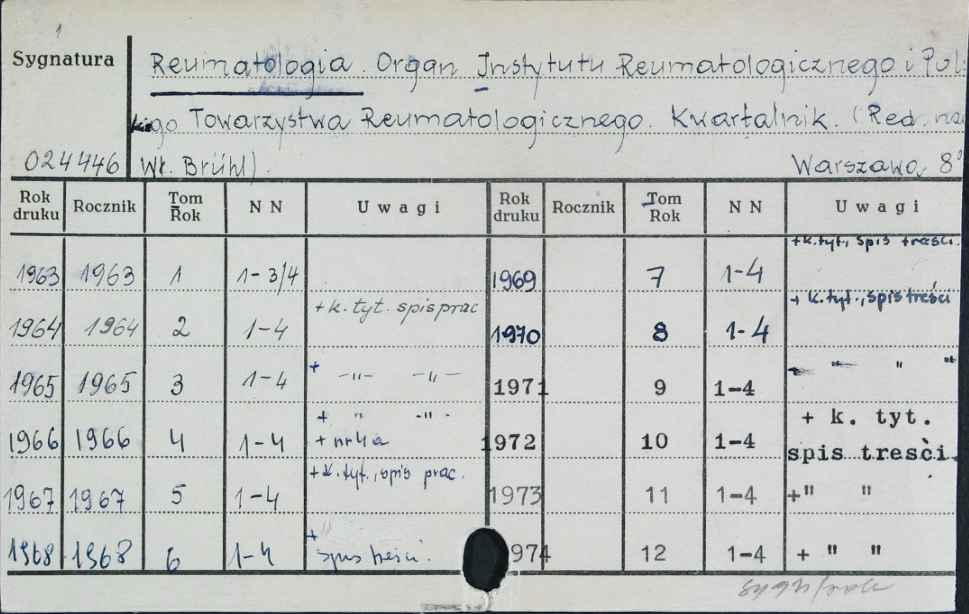 Sygnatura
Reumatologia. Organ Instytutu Reumatologicznego i Pol
kiego Towarzystwa Reumatologicznego. Kwartalnik. (Red. na
024446 Wł. Brühl). Warszawa 8°
Rok druku Rocznik Tom Rok N N Uwagi Rok druku Rocznik Tom Rok N N Uwagi
1963 1963 1 1-3/4 1969 7 1-4 +k. tyt., spis treści.
1964 1964 2 1-4 +k. tyt. spis prac 1970 8 1-4 + k. tyt., spis treści
1965 1965 3 1-4 + -"- -"- 1971 9 1-4 " " "
1966 1966 4 1-4 + " -"- + nr 4a 1972 10 1-4 + k. tyt. spis treści.
1967 1967 5 1-4 +k. tyt., spis prac. 1973 11 1-4 +" "
1968 1968 6 1-4 + spis treści. 974 12 1-4 + " "